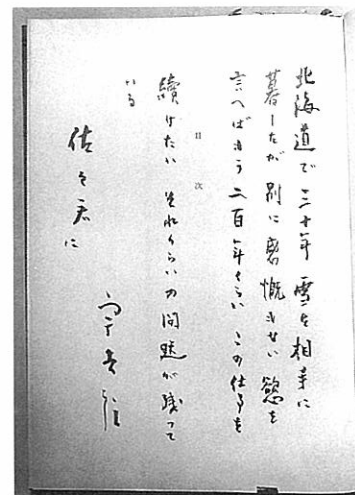 北海道で三十年 雪を相手に
暮したが 別に感慨もない 慾を
言へばもう二百年くらい この仕事を
目次
續けたい それくらいの問題が残って
いる
佐々君に
宇吉郎